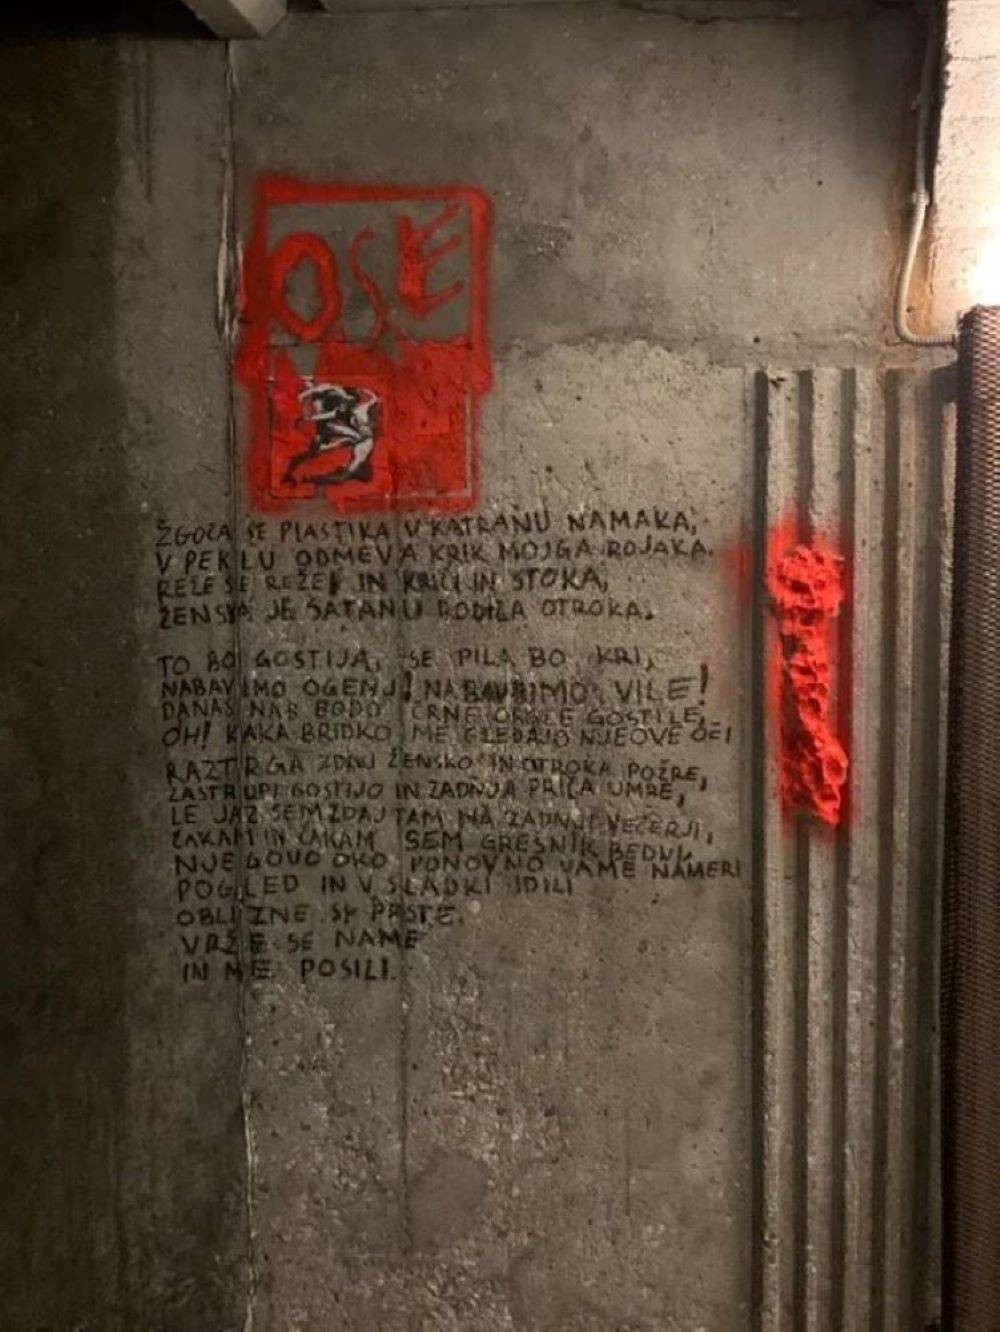 OSE
ŽGOLA SE PLASTIKA V KATRANU NAMAKA,
V PEKLU ODMEVA KRIK MOJGA ROJAKA.
REŽE SE REŽE IN KRIČI IN STOKA,
ŽENSKA JE SATANU RODILA OTROKA.
TO BO GOSTIJA, SE PILA BO KRI,
NABAVIMO OGENJ! NABAVIMO VILE!
DANAS NAS BODO ČRNE GOSTILE,
OH! KAKA BRIDKO ME GLEDAJO NJEOVE OČI
RAZTRGA ZDAJ ŽENSKO IN OTROKA POŽRE,
ZASTRUPI GOSTIJO IN ZADNJA PRIČA UMRE,
LE JAZ SEM ZDAJ TAM NA ZADNJI VEČERJI,
ČAKAM IN ČAKAM SEM GREŠNIK BEDNI,
NJEGOVO OKO PONOVNO VAME NAMERI
POGLED IN V SLADKI IDILI
OBLIZNE SI PRSTE.
VRŽE SE NAME
IN ME POSILI.